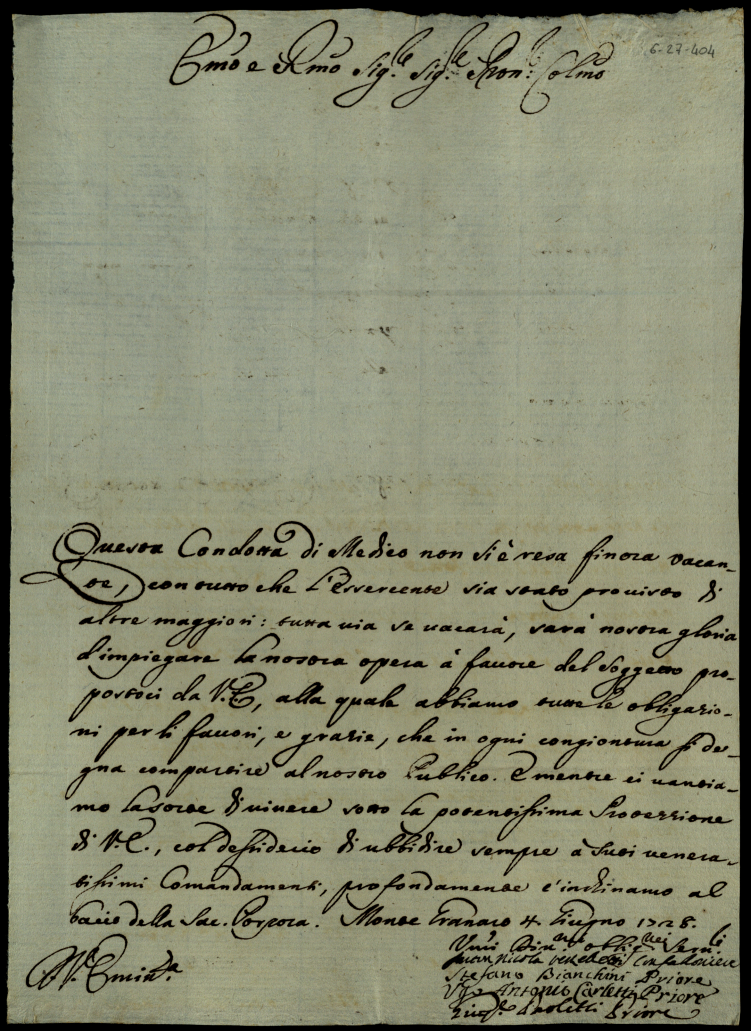 6-27-404
Emo e Rmo Sig.re Sig.re Pron: Colmo
Questa Condotta di Medico non si è resa finora vacan-
te, con tutto che l'Essercente sia stato provisto di
altre maggiori: tutta via se vacarà, sarà nostra gloria
d'impiegare la nostra opera à favore del Soggetto pro-
postoci da V.E, alla quale abbiamo tutte le obligazio-
ni per li favori, e grazie, che in ogni congiontura si de-
gna compartire al nostro Publico. E mentre ci vantia-
mo la sorte di vivere sotto la potentissima Protezzione
di V.E., col desiderio di ubbidire sempre à suoi venera-
tissimi Comandamenti, profondamente c'inchinamo al
bacio della Sac. Porpora. Monte Granaro 4. Giugno 1728.
V.ra Emin.za
Umi Din:mi oblig:mi Serri
Nicola Confaloniere
Stefano Bianchini Priore
Antonio Carletti Priore
Paoletti Priore